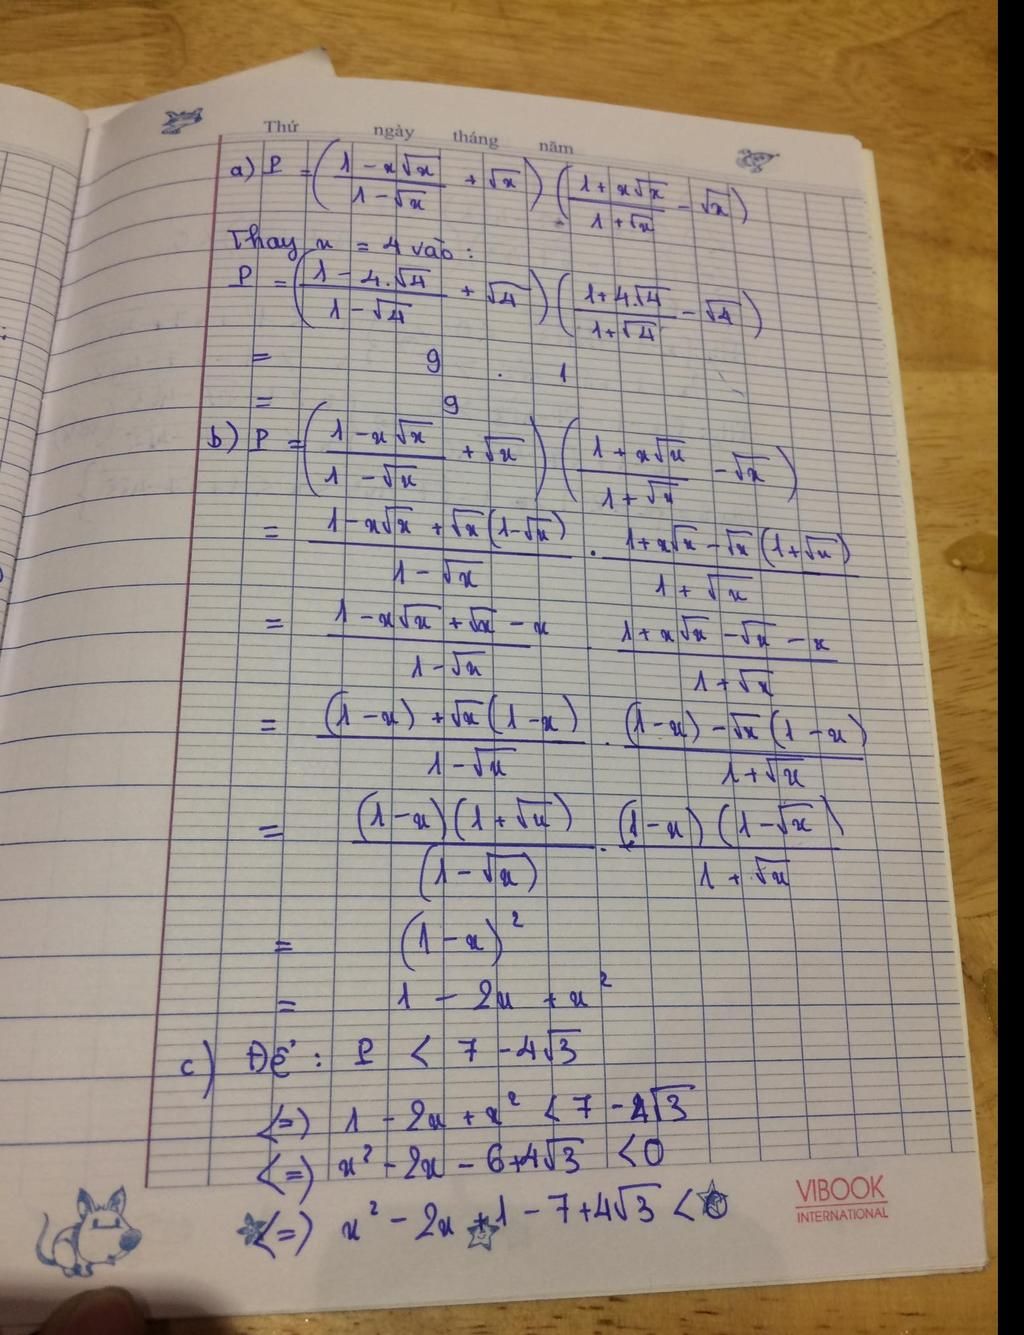 Thứ ngày tháng năm
a) P = ( (1 - x√x)/(1 - √x) + √x ) ( (1 + x√x)/(1 + √x) - √x )
Thay x = 4 vào :
P = ( (1 - 4.√4)/(1 - √4) + √4 ) ( (1 + 4.√4)/(1 + √4) - √4 )
= 9 . 1
= 9
b) P = ( (1 - x√x)/(1 - √x) + √x ) ( (1 + x√x)/(1 + √x) - √x )
= (1 - x√x + √x(1 - √x))/(1 - √x) . (1 + x√x - √x(1 + √x))/(1 + √x)
= (1 - x√x + √x - x)/(1 - √x) . (1 + x√x - √x - x)/(1 + √x)
= ((1 - x) + √x(1 - x))/(1 - √x) . ((1 - x) - √x(1 - x))/(1 + √x)
= ((1 - x)(1 + √x))/((1 - √x)) . ((1 - x)(1 - √x))/(1 + √x)
= (1 - x)²
= 1 - 2x + x²
c) Để : P < 7 - 4√3
<=> 1 - 2x + x² < 7 - 4√3
<=> x² - 2x - 6 + 4√3 < 0
<=> x² - 2x + 1 - 7 + 4√3 < 0
VIBOOK
INTERNATIONAL